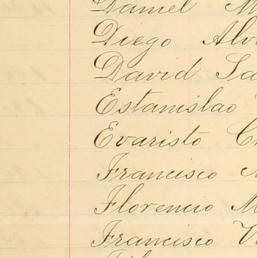 Daniel M
Diego Alv
David Sa
Estanislao
Evaristo C
Francisco
Florencio M
Francisco V